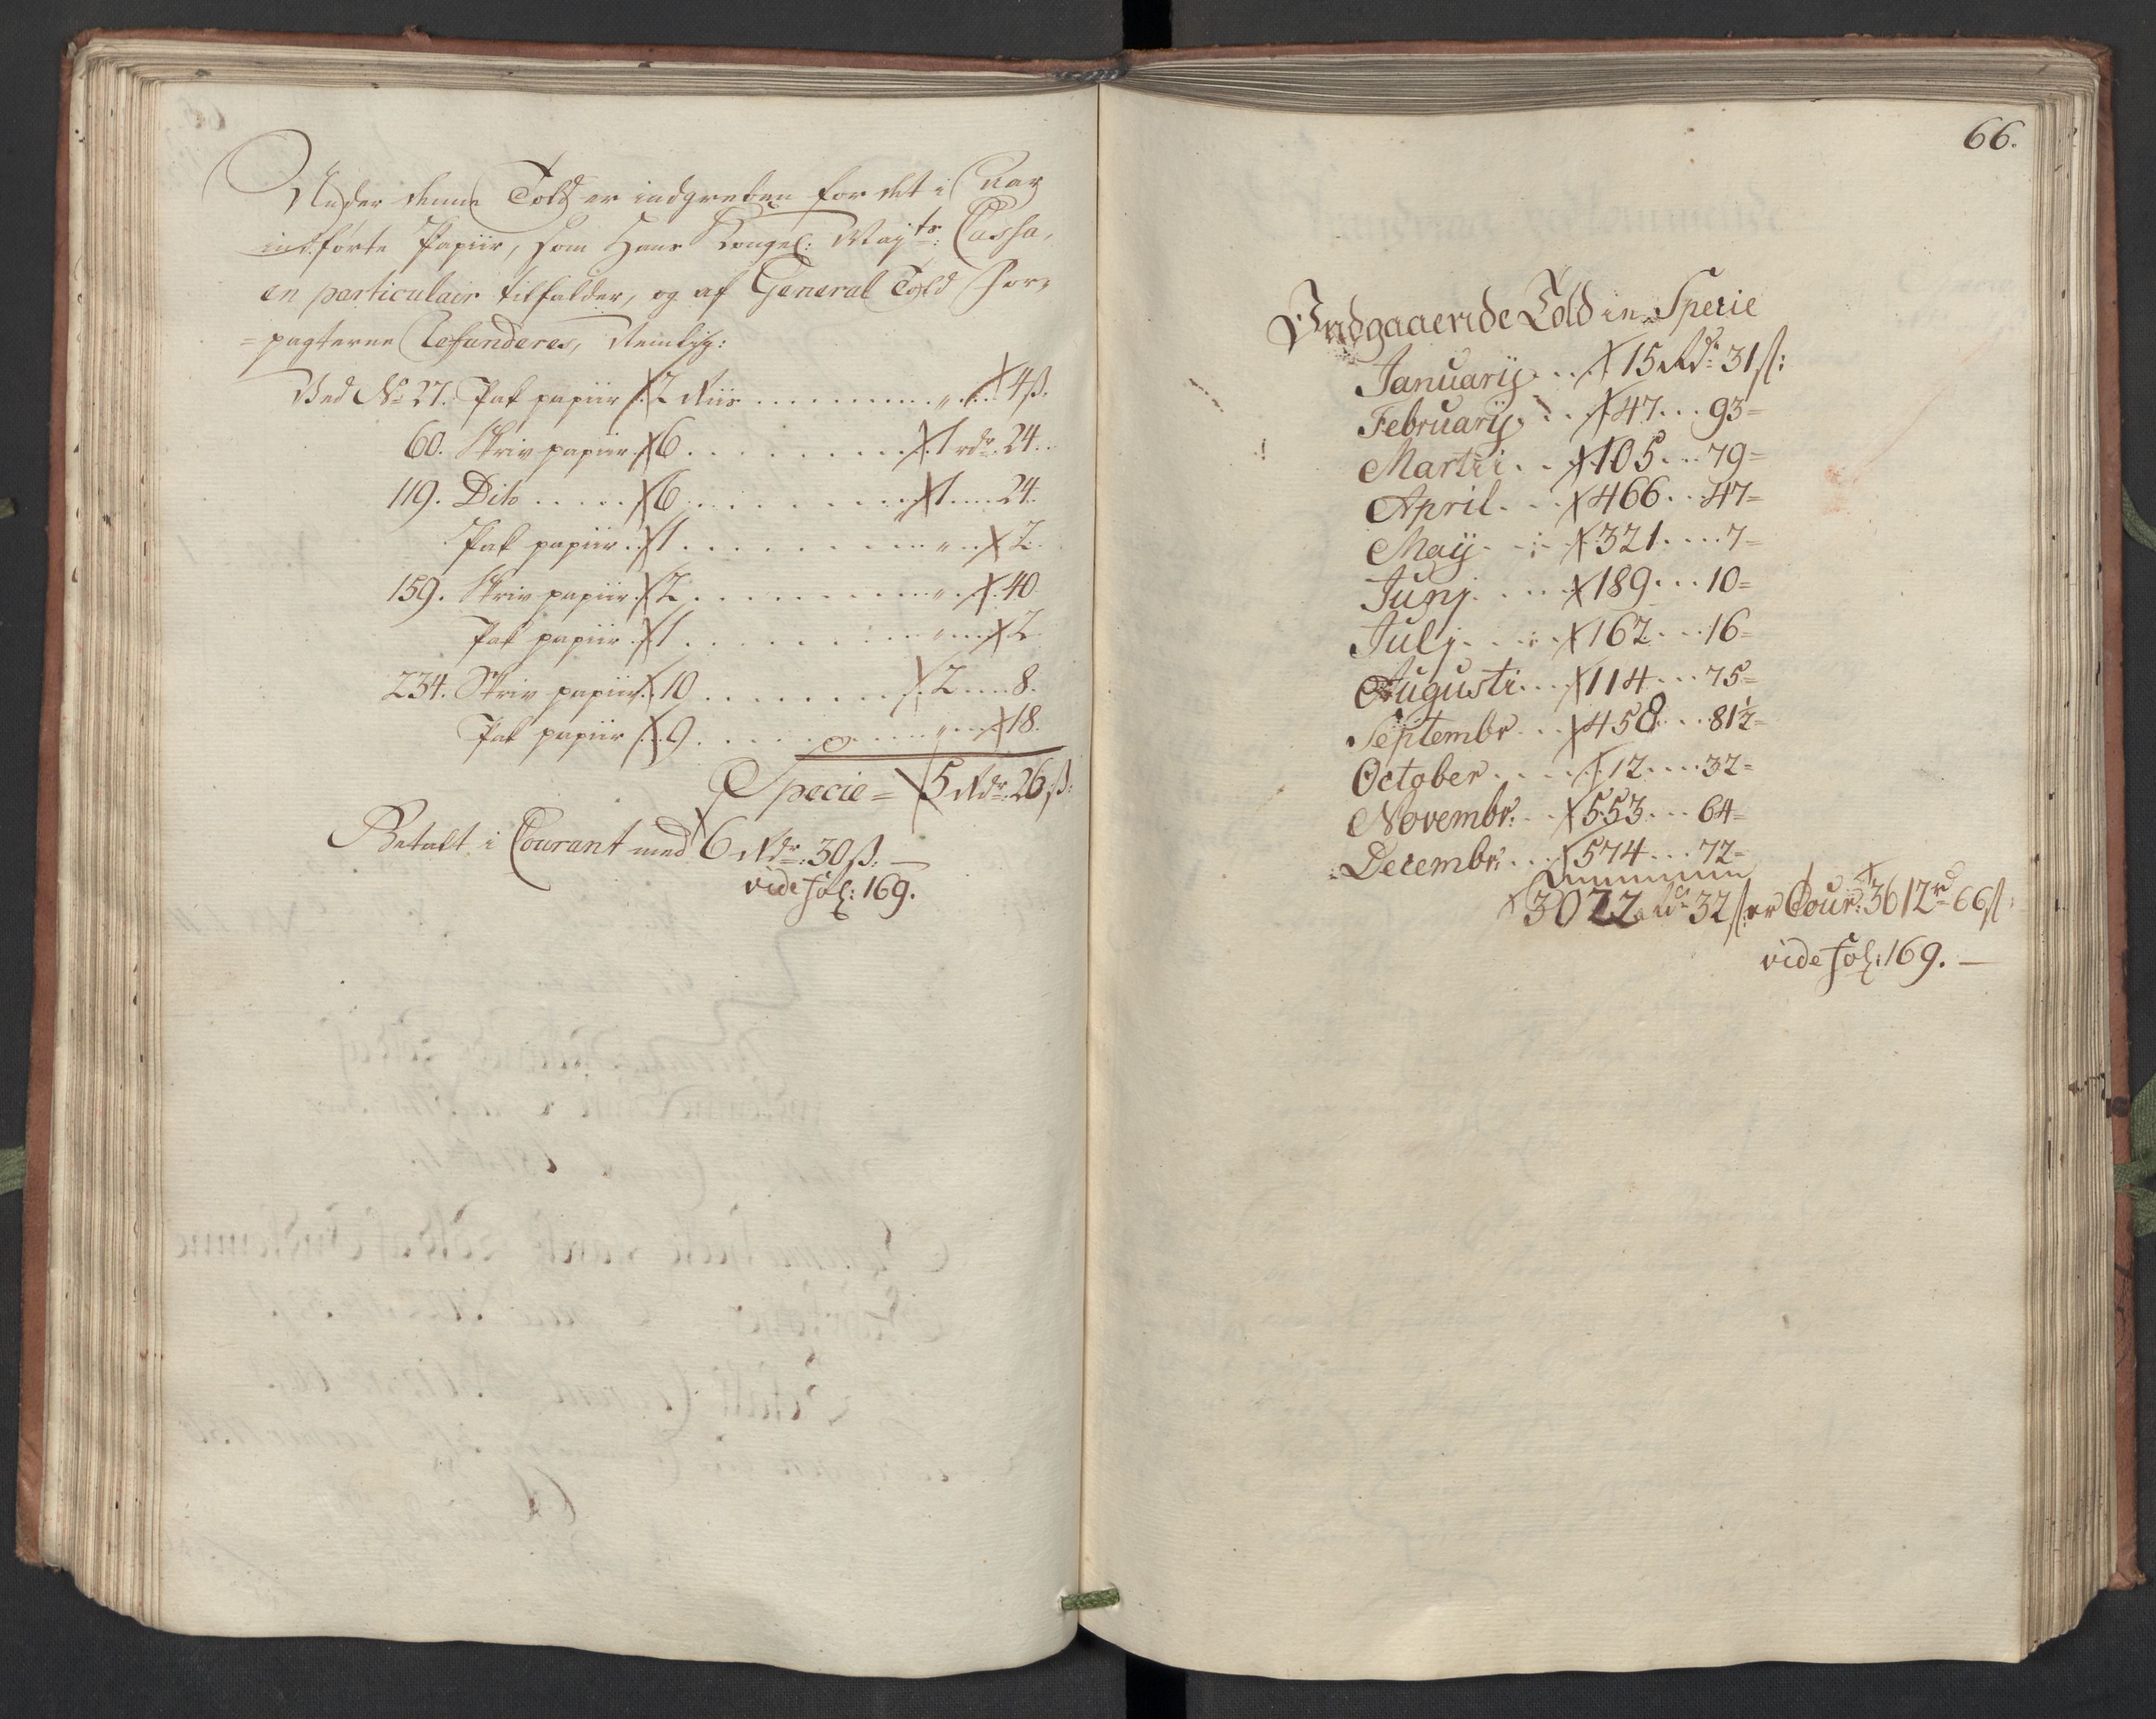 Under denne Told er indgreben for det i aar
indførte Papiir, som Hans Kongel: Mayts: Cassa,
en particulair tilfalder, og af General Told For=
=pagterne Refunderes, Nemlig:
Ved No 27. Pak papiir 2 Riis ........ " .. 4 ß.
60. Skriv papiir 6 ........ 1 rdr. 24 ..
119. Dito ..... 6 ........ 1 .... 24.
Pak papiir .. 1 ........ " .. 2.
159. Skriv papiir 2 ........ " .. 40
Pak papiir .. 1 ........ " .. 2
234. Skriv papiir 10 ........ 2 .... 8.
Pak papiir .. 9 ........ " .. 18.
Specie = 5 Rdr: 26 ß:
Betalt i Courant med 6 Rdr: 30 ß: —
vide fol: 169.
66.
Indgaaende Told in Specie
Januarij ... 15 Rdr 31 ß:
Februarij ... 47 ... 93 =
Martii ... 105 ... 79 =
April ... 466 ... 47 =
Maij ... 321 ... 7 =
Junj ... 189 ... 10 =
Julj ... 162 ... 16 =
Augusti ... 114 ... 75 =
Septembr ... 458 ... 81½ =
October ... 12 ... 32 =
Novembr: ... 553 ... 64 =
Decembr: ... 574 ... 72 =
3022 rdr 32 ß er Cour: 3612 rd 66 ß:
vide fol: 169. —